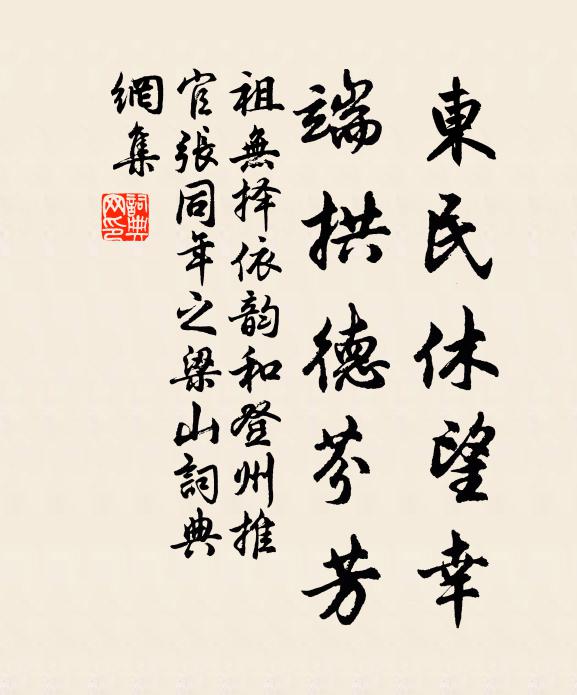 東民休望幸
端拱德芬芳
祖無择依韵和登州推
官張同年之梁山詞典
網集
詞典
网印